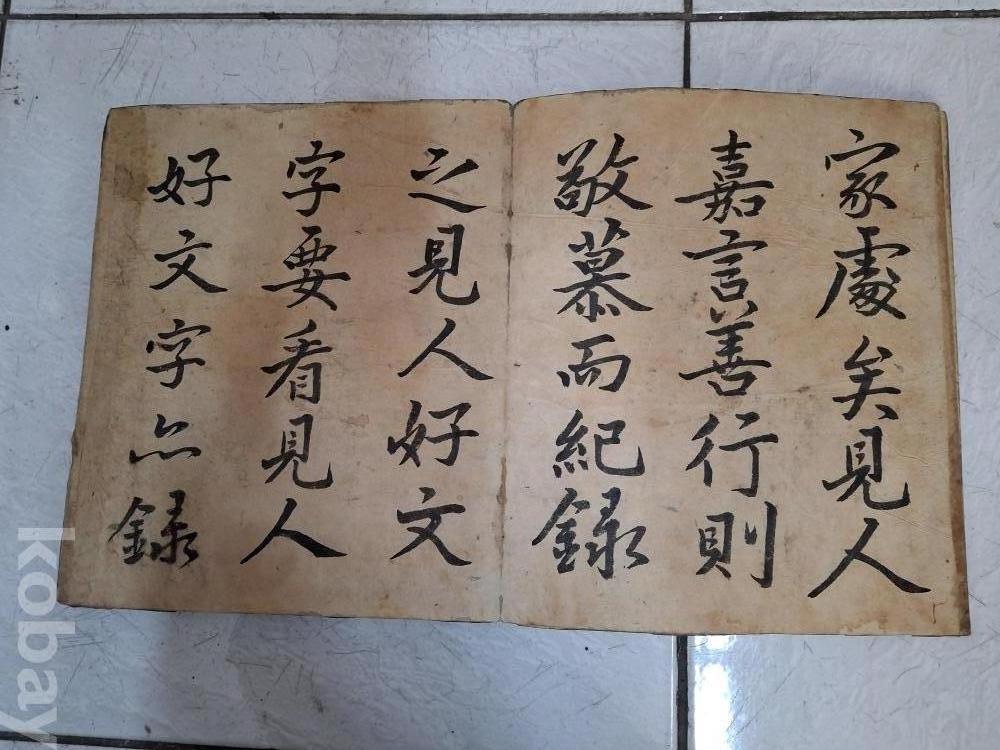 家處矣見人
嘉言善行則
敬慕而紀録
之見人好文
字要看見人
好文字亦録
kobay